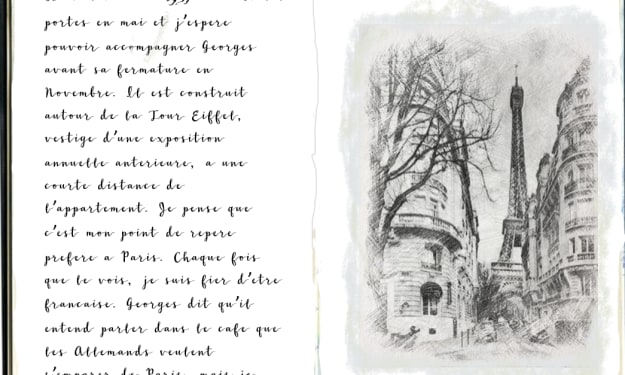 portes en mai et j'espere
pouvoir accompagner Georges
avant sa fermature en
Novembre. Il est construit
autour de la Tour Eiffel,
vestige d'une exposition
annuelle anterieure, a une
courte distance de
l'appartement. Je pense que
c'est mon point de repere
prefere a Paris. Chaque fois
que le vois, je suis fier d'etre
francaise. Georges dit qu'il
entend parler dans le cafe que
les Allemands veulent
s'emparer de Paris, mais je